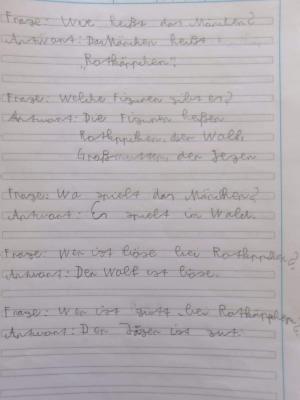 Frage: Wie heißt das Märchen?
Antwort: Das Märchen heißt
„Rotkäppchen".
Frage: Welche Figuren gibt es?
Antwort: Die Figuren heßen
Rotkäppchen, der Wolf,
Großmutter, der Jäger
Frage: Wo spielt das Märchen?
Antwort: Es spielt im Wald.
Frage: Wer ist böse bei Rotkäppchen?
Antwort: Der Wolf ist böse.
Frage: Wer ist gut bei Rotkäppchen?
Antwort: Der Jäger ist gut.